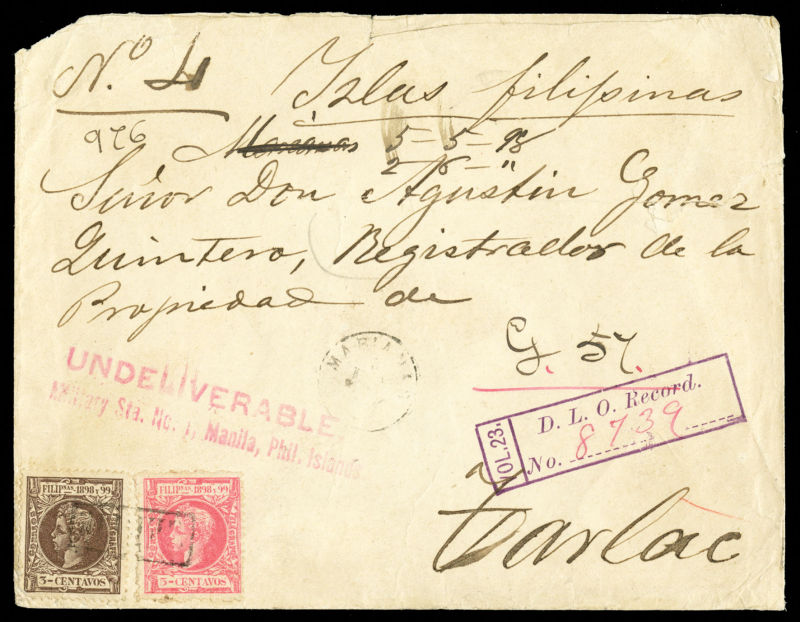 N.º 4 Izlas filipinas
976 Marianas 5-5-98
2 - " - "
Señor Don Agustin Gomez
Quintero, Registrador de la
Propiedad de
G. 57.
MARIAN
UNDELIVERABLE,
Military Sta. No. 1, Manila, Phil. Islands
VOL. 23.
D. L. O. Record.
No. 8739
Tarlac
FILIPNAS 1898 Y 99
3-CENTAVOS
FILIPNAS 1898 Y 99
5-CENTAVOS